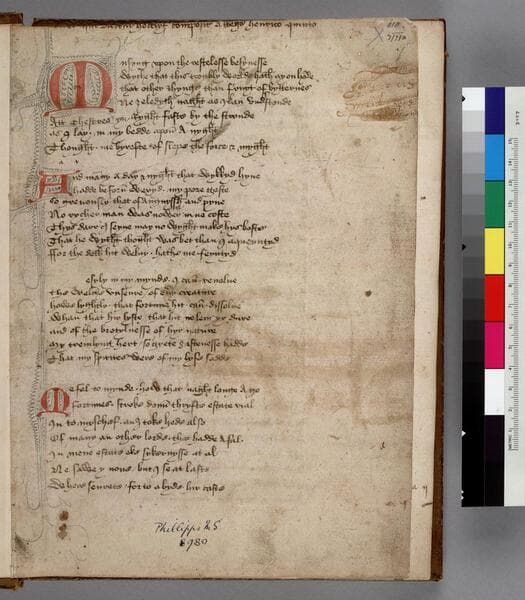 hoclyf composit ad regem henricu quinto
Musyng vpon the restelesse besynesse
Whyche that this trowbly world hath ay on hade
that other thyng than fruyt of bytternes
Ne zeldyth naght as I can vndstonde
Att Chestres yn Ryght faste by the stronde
as I lay in my bedde apon a nyght
Thought me byrefte of slepe the force & myght
And many a day & nyght that wykkyd hyne
hadde beforn vexyd my pore goste
So grevously that of Anguyssh and pyne
No rycher man was nowher in no coste
Thys dar I seyne may no wyght make hys boste
That he wyth thought was bet than I aqueyntyd
ffor the deth hit welny hathe me feyntyd
esyly in my mynde I can revolue
the welthe vnseure of eny creature
howe lyghtly that fortune hit can dissolue
Whan that hir lyste that hit no lenger dure
and of the brotylnesse of hyr nature
my tremlyng hert so grete gastenesse hadde
That my spirites were of my lyfe sadde
Me fel to mynde how that naght longe ago
ffortunes stroke doun thryste estate rial
In to myschef and I toke hede also
Of many an other lorde that hadde a fal
In mene estate eke sykernysse at al
Ne sawe y none but I se at laste
Where seurete for to abyde hir caste
Phillipps MS
8980